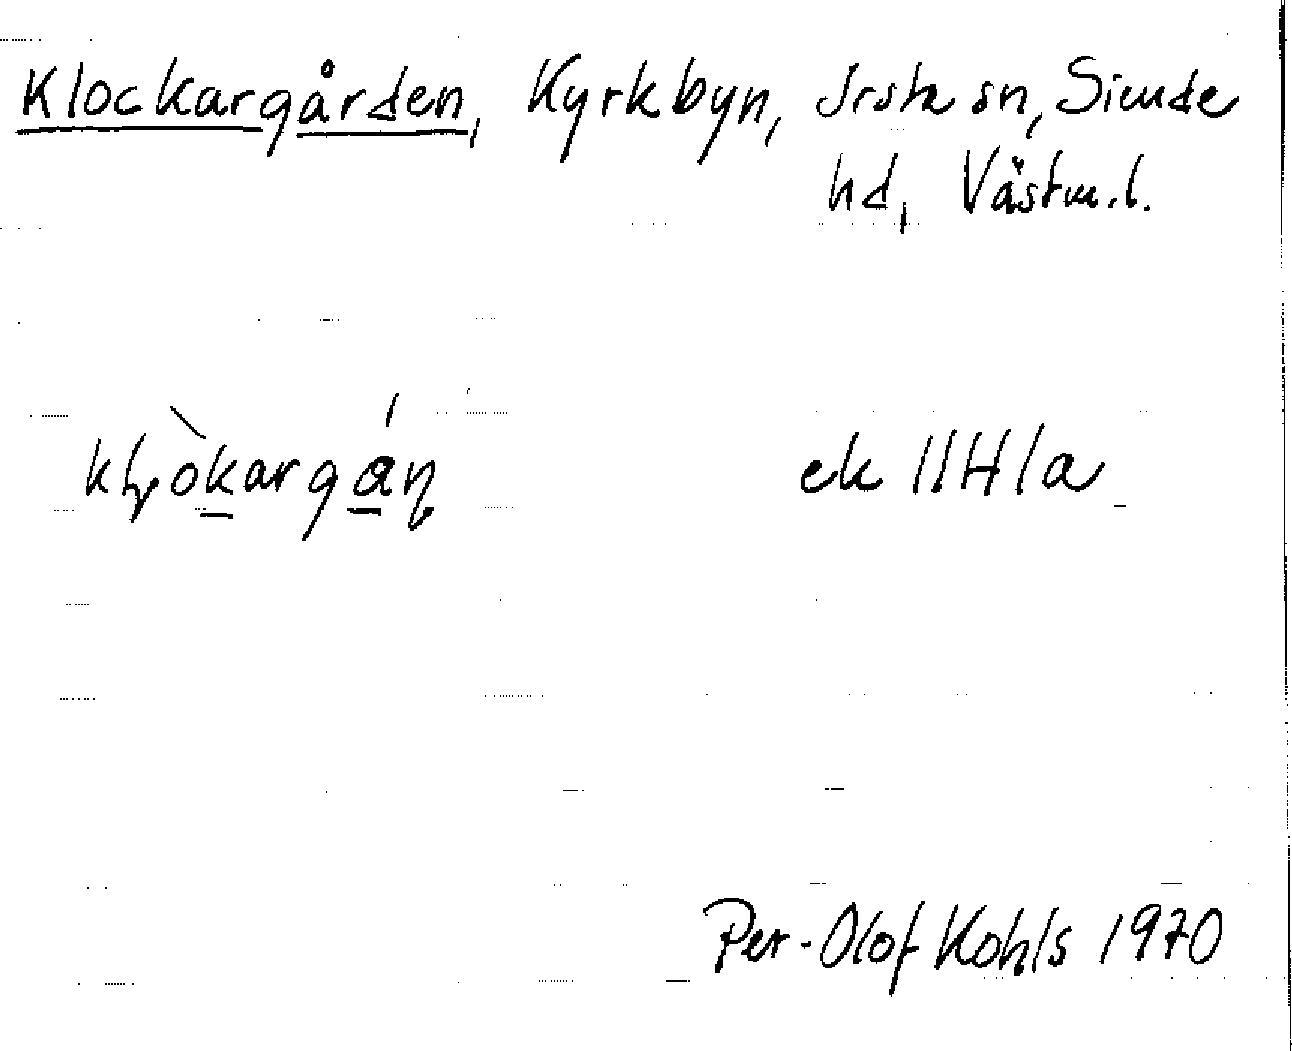 Klockargården, Kyrkbyn, Irsta sn, Siende
hd, Västm. l.
ek 11H1a
Per-Olof Kohls 1970